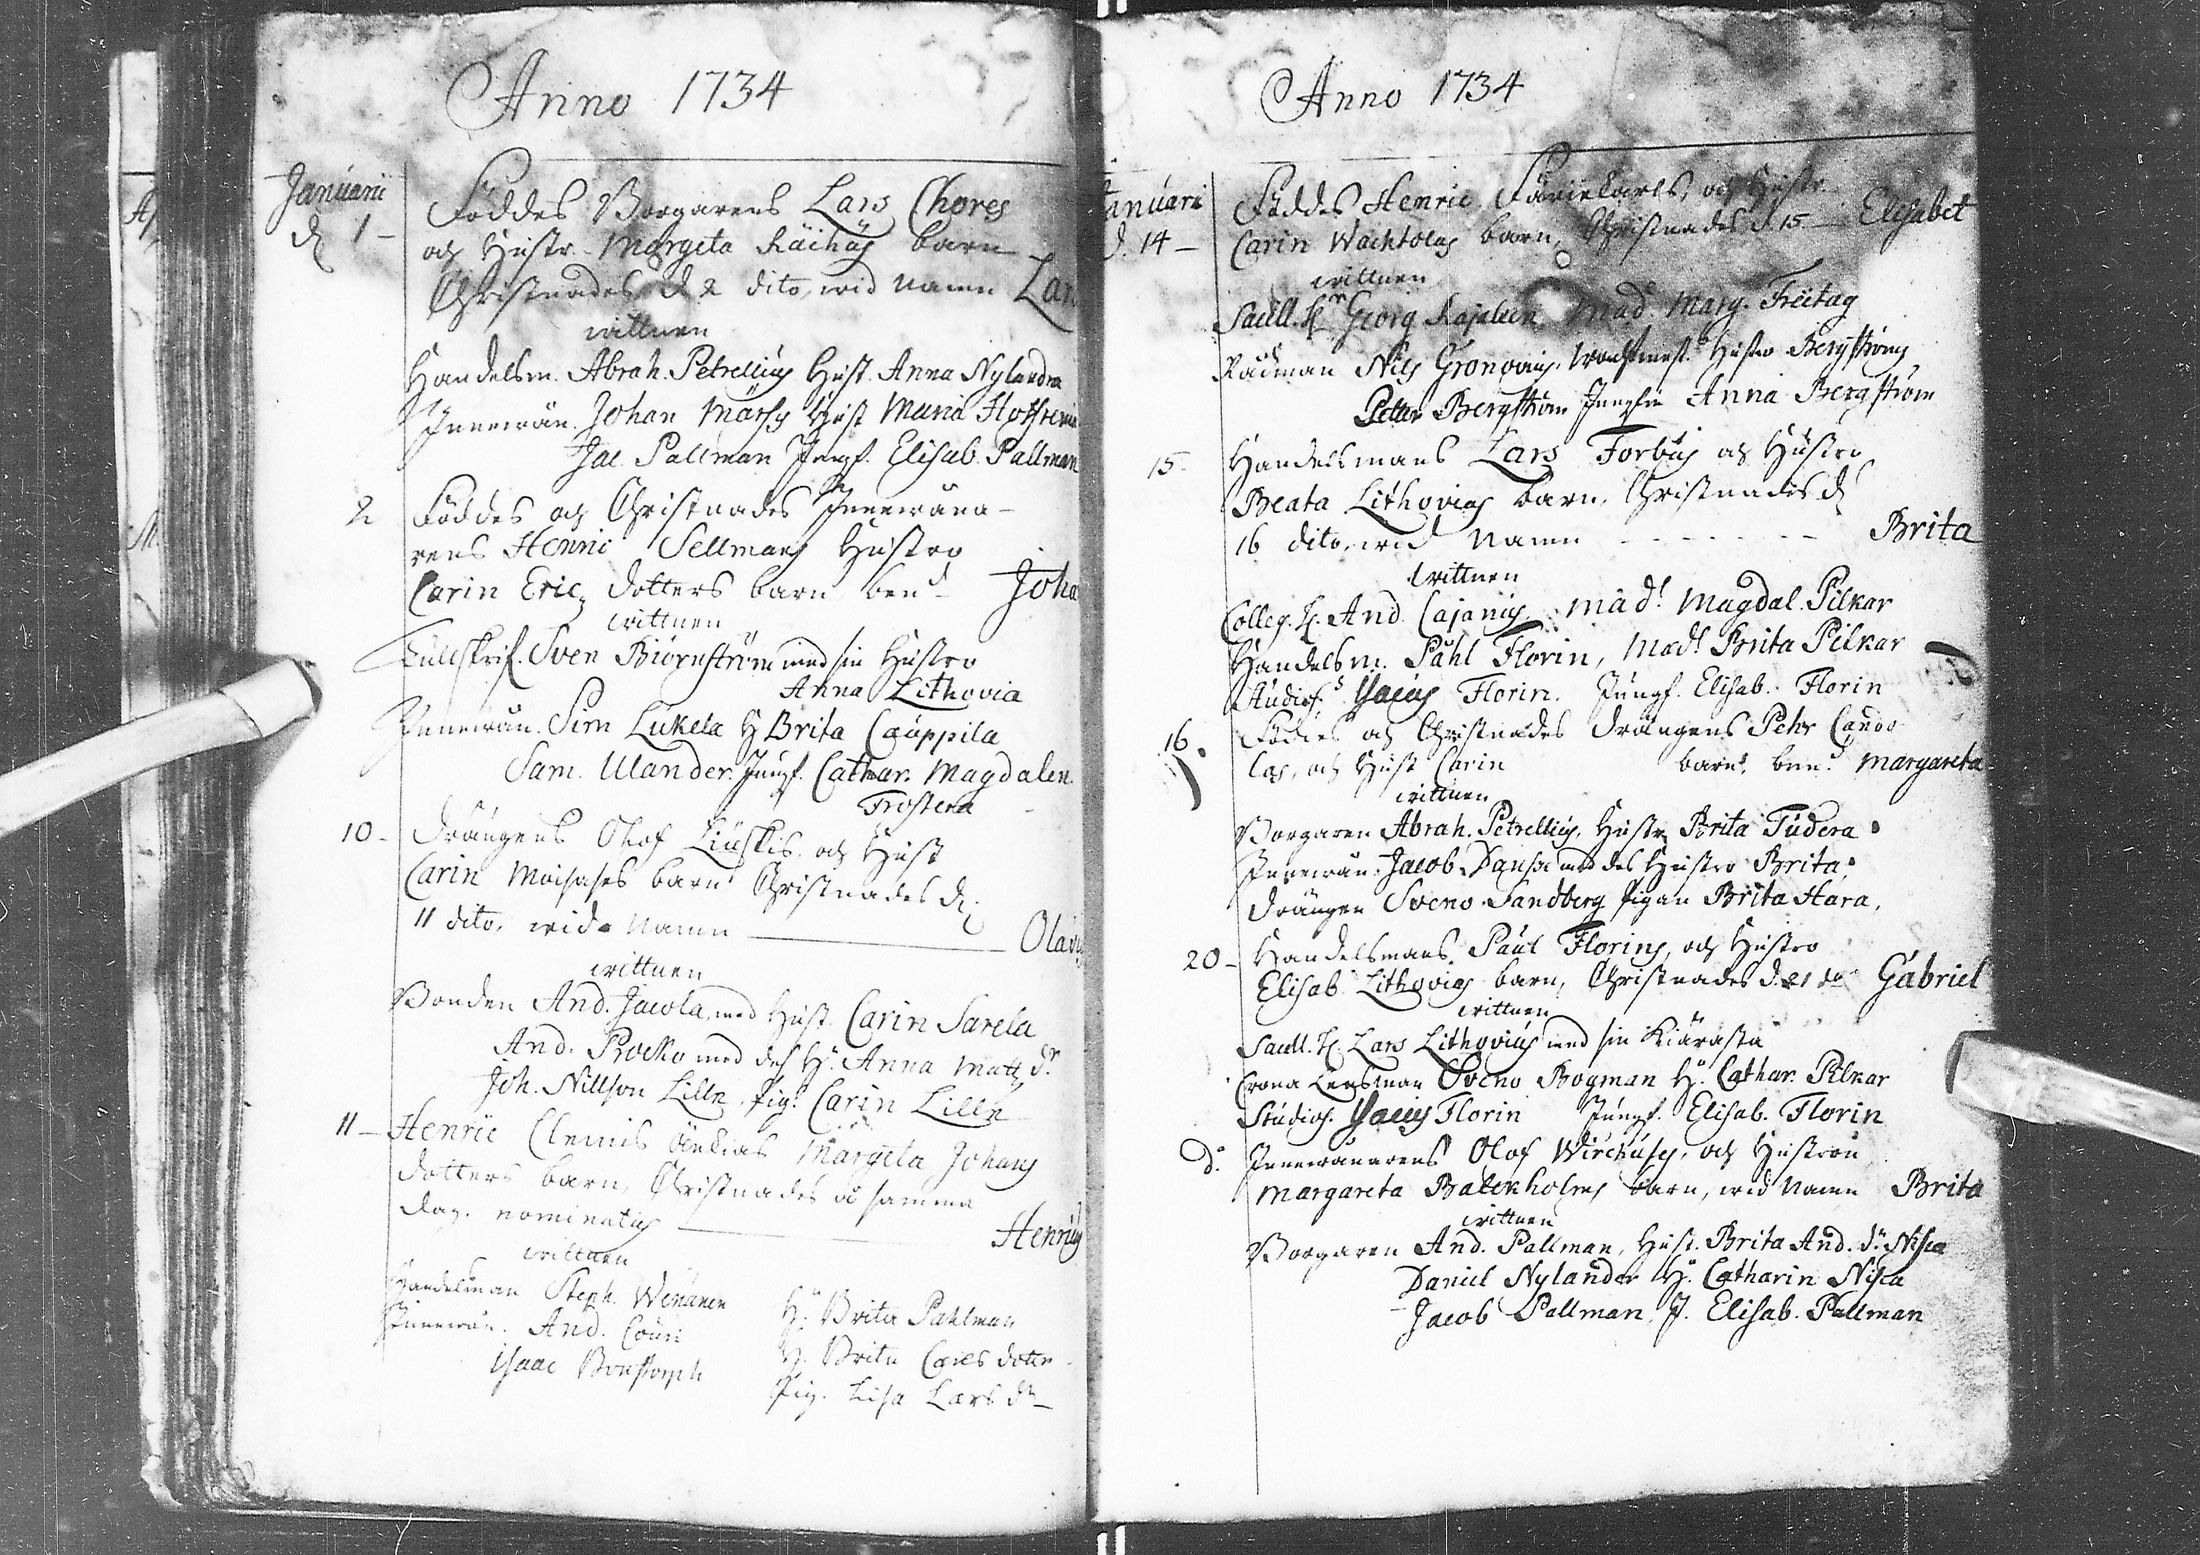 Anno 1734
Januarii
d. 1 - Föddes Borgarens Lars Chores
och Hustr. Margeta Räihäs barn
Christnades d. 2 dito, wid namn Lars
wittnen
Handelsm. Abrah. Petrellius Hust. Anna Nylandra
Innewån. Johan Hust Maria
Jac. Pallman Jungf. Elisab. Pallman
2 Föddes och Christnades Innewåna-
rens Henric Sellmans Hustro
Carin Erics dotters barn ben.d Joha
wittnen
Tullskrif. Sven Biörnström med sin Hustro
Anna Lithovia
Innewån. Sim Lukela H Brita Cauppila
Sam. Ulander. Jungf. Cathar. Magdalen.
Frostera
10 - Drängens Olof och Hust
Carin barn Christnades d.
11 dito, wid namn Olavus
wittnen
Bonden And. Jacola, med Hust. Carin Sarela
And. Procko med des H. Anna Matts dr.
Joh. Nillson Lille. Pig. Carin Lille
11 - Henric Clemis Margeta Johans
dotters barn, Christnades samma
dag. nominatus Henricus
wittnen
Handelsman Steph. Wenänen H. Brita Pahlman
Innewån. And. Couri H. Brita Carls dotter
Isaac Pig. Lisa Lars dr
Anno 1734
Januarii
d. 14 - Föddes Henric och Hustr.
Carin Wachtolas barn, Christnades d. 15 - Elisabet
wittnen
Sacell. H. Georg Kajalen Mad. Marg. Freitag
Rådman Nils Gronovius, Hustro Bergströms
Petter Bergström Jungfru Anna Bergström
15 - Handelsmans Lars Forbus och Hustro
Beata Lithovius barn, Christnades d.
16 dito, wid namn - - - - - - - Brita
wittnen
Colleg. H. And. Cajanus, Mad. Magdal. Pilkar
Handelsm. Påhl Florin, Mad. Brita Pilkar
Studios. Isacus Florin. Jungf. Elisab. Florin
16. Föddes och Christnades drängens Pehr Cando
las, och Hust Carin barn, ben.d Margareta
wittnen
Borgaren Abrah. Petrellius, Hustr. Brita Tudera
Innewån. Jacob med des Hustro Brita
Drängen Sveno Sandberg Pigan Brita Hara,
20 - Handelsmans Paul Florins, och Hustro
Elisab. Lithovias barn, Christnades d. 21 do Gabriel
wittnen
Sacell. H. Lars Lithovius med sin Kiärasta
Crono Lensman Sveno Bogman H. Cathar. Pilkar
Studios. Isacus Florin Jungf. Elisab. Florin
do. Innewånarens Olof och Hustrou
Margareta Balckholms barn, wid namn Brita
wittnen
Borgaren And. Pallman, Hust. Brita And. dr. Nisca
Daniel Nylander H. Catharin Nisca
Jacob Pallman J. Elisab. Pallman